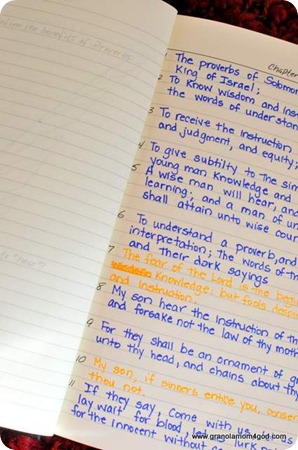 Chapter
1 The proverbs of Solomon
King of Israel;
2 To know wisdom and ins
the words of understan
3 To receive the instruction
and judgment, and equity;
4 To give subtilty to the sim
young man knowledge and
5 A wise man will hear, and
learning; and a man of un
shall attain unto wise coun
6 To understand a proverb, and
interpretation; the words of th
and their dark sayings
7 The fear of the Lord is the beg
knowledge, but fools despis
and instruction.
8 My son hear the instruction of th
and forsake not the law of thy moth
9 For they shall be an ornament of g
unto thy head, and chains about thy
10 My son, if sinners entice you, consent
thou not.
11 If they say, Come with us,
lay wait for blood, let us lurk
for the innocent without
www.granolamom4god.com